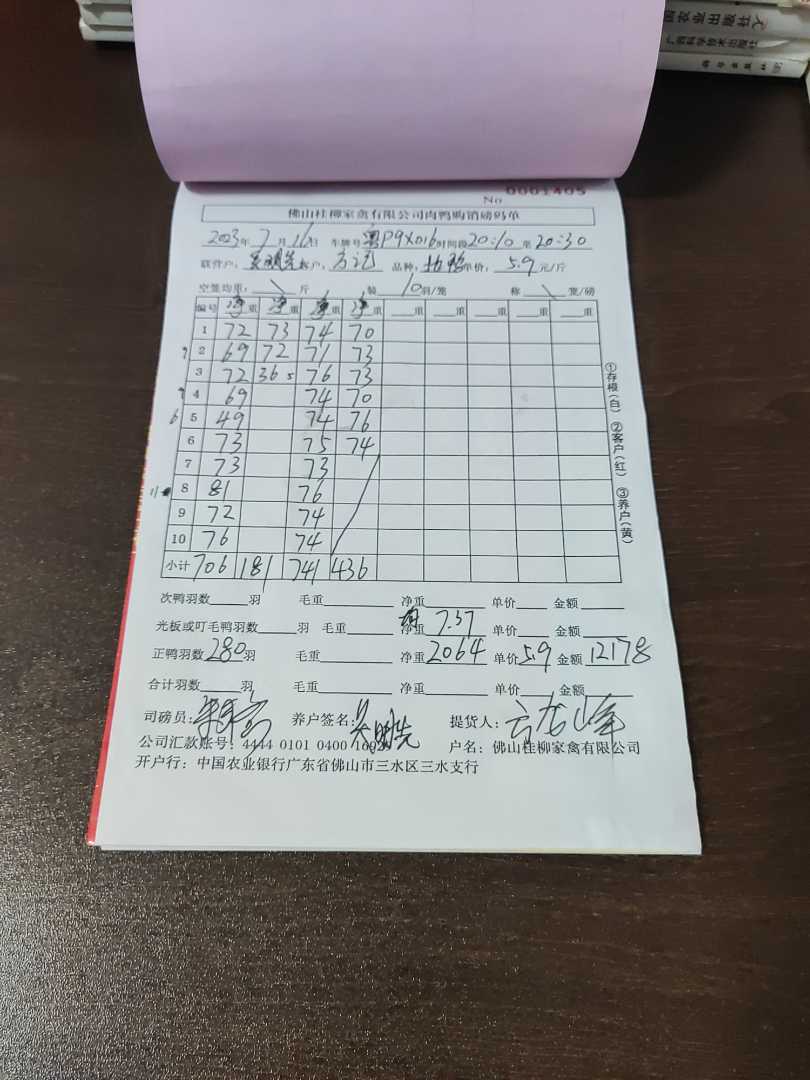 国农业出版社
广西科学技术出版社
科学出版社
No 0001405
佛山桂柳家禽有限公司肉鸭购销磅码单
2023年 7月 16日 车牌号 粤P9X016 时间段 20:10 至 20:30
联营户: 吴明先 客户: 方记 品种: 鸭 单价: 5.9 元/斤
空笼均重: \ 斤 装 10 羽/笼 称 \ 笼/磅
编号 净重 净重 净重 净重 重 重 重 重 重
1 72 73 74 70
9 2 69 72 71 73
3 72 36 5 76 73
9 4 69 74 70
6 5 49 74 76
6 73 75 74
7 73 73
11 8 81 76
9 72 74
10 76 74
小计 706 181 741 436
①存根(白) ②客户(红) ③养户(黄)
次鸭羽数 羽 毛重 净重 单价 金额
光板或叮毛鸭羽数 羽 毛重 净重 7.37 单价 金额
正鸭羽数 280 羽 毛重 净重 2064 单价 5.9 金额 12178
合计羽数 羽 毛重 净重 单价 金额
司磅员: 养户签名: 吴明先 提货人:
公司汇款账号: 4444 0101 0400 户名: 佛山桂柳家禽有限公司
开户行: 中国农业银行广东省佛山市三水区三水支行